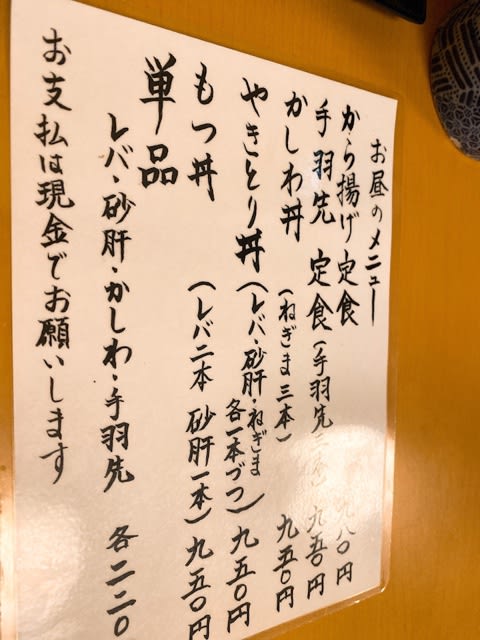 お昼のメニュー
から揚げ定食 九八〇円
手羽先 定食 (手羽先三本) 九五〇円
かしわ丼 (ねぎま三本) 九五〇円
やきとり丼 (レバ・砂肝・ねぎま 各一本づつ) 九五〇円
もつ丼 (レバ二本 砂肝一本) 九五〇円
単品
レバ・砂肝・かしわ・手羽先 各二二〇
お支払は現金でお願いします